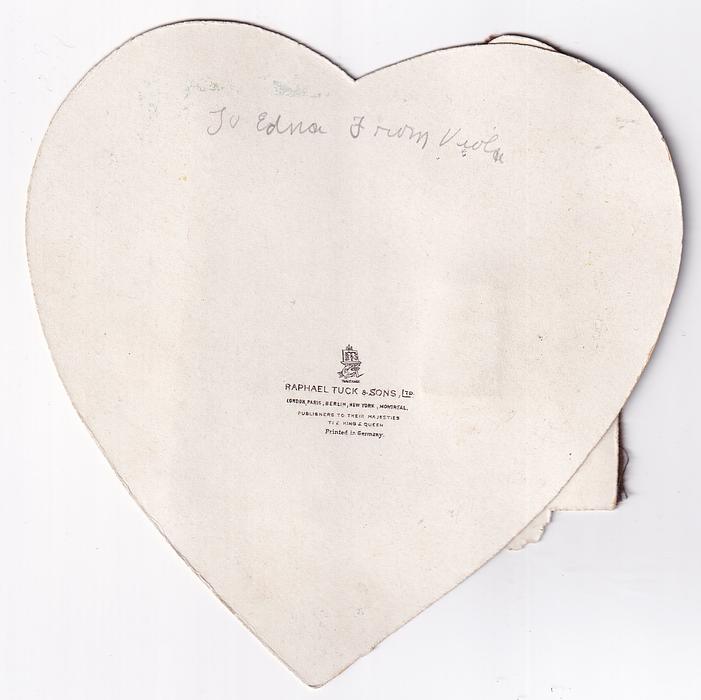 To Edna From Viola
RAPHAEL TUCK & SONS, LTD.
LONDON, PARIS, BERLIN, NEW YORK, MONTREAL.
PUBLISHERS TO THEIR MAJESTIES
THE KING & QUEEN
Printed in Germany.